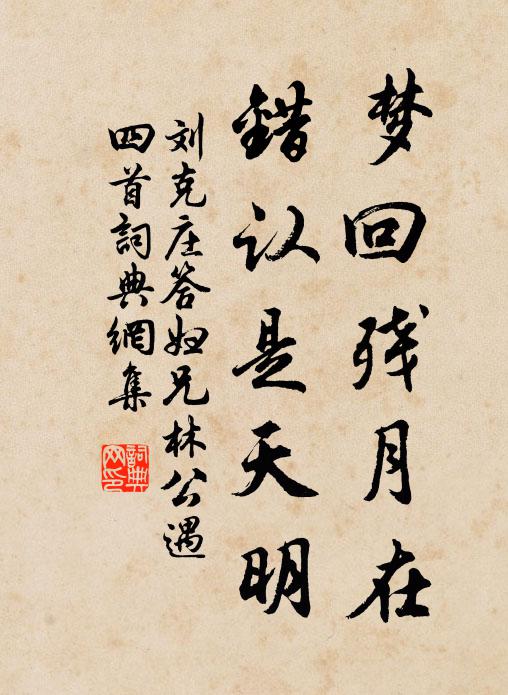 梦回残月在
错认是天明
刘克庄答妇兄林公遇
四首詞典網集
詞典网印